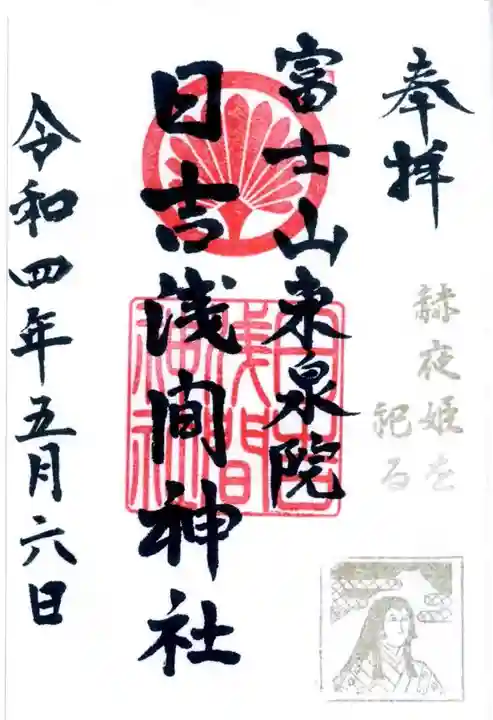 奉拝
赫夜姫を
祀る
富士山東泉院
日吉浅間神社
令和四年五月六日